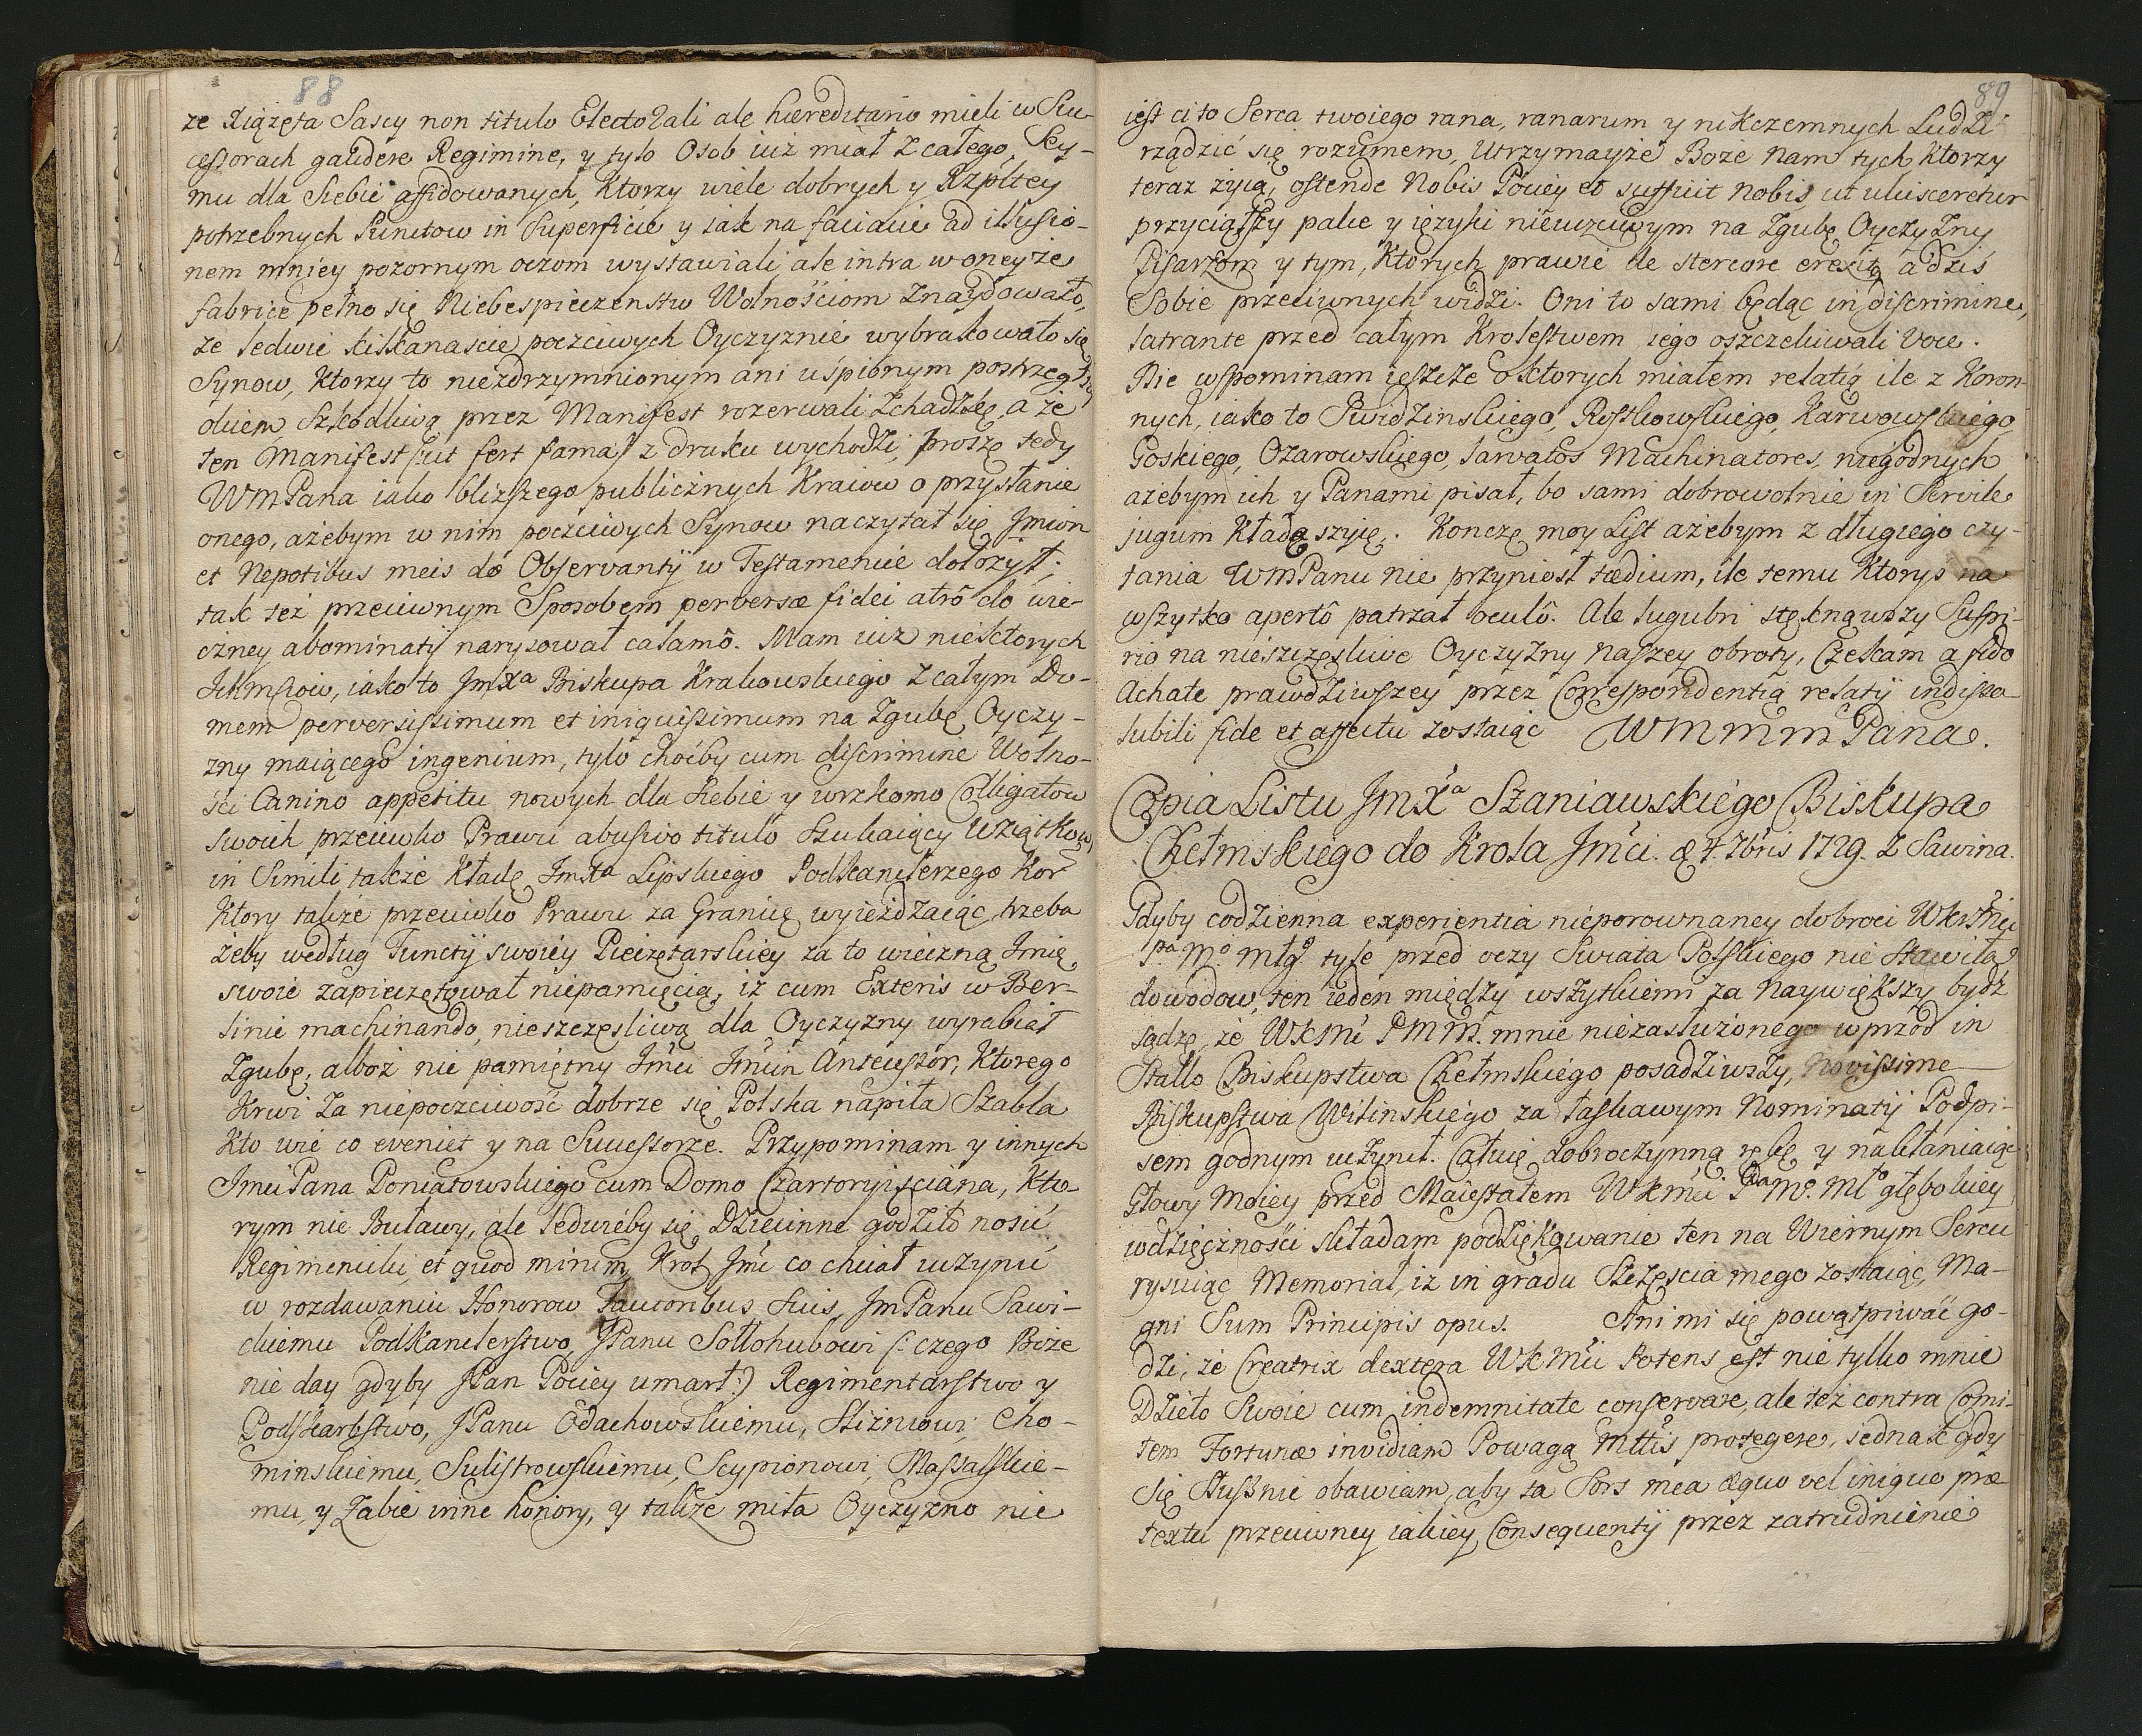 88
ze Xiążęta Sascy non titulo Electorali ale hæreditario mieli w Suc-
cessorach gaudere Regimine, y tylo Osob iuż miał z całego Sey-
mu dla Siebie affidowanych, Ktorzy wiele dobrych y Rzpltey
potrzebnych Punctow in Superficie y iak na faciacie ad illusio-
nem mniey pozornym oczom wystawiali, ale intra w oneyże
fabrice pełno się Niebespieczenstw Wolnościom znaydowało,
ze ledwie kilkanascie poczciwych Oyczyznie wybrakowało się
Synow, Ktorzy to niezdrzymnionym ani uśpionym postrzegłszy
okiem Szkodliwą przez Manifest rozerwali Zchadzkę, a że
ten Manifest (:ut fert fama:) z druku wychodzi, proszę tedy
WmPana iako bliższego publicznych Kraiow o przysłanie
onego, ażebym w nim poczciwych Synow naczytał się Jmion
et Nepotibus meis do Observantÿ w Testamencie dołożył;
tak też przeciwnym Sposobem perversæ fidei atrô do wie-
czney abominatÿ narysował calamô. Mam iuż niektorych
Jchmciow, iako to JmXa Biskupa Krakowskiego z całym Do-
mem perversissimum et iniquissimum na Zgubę Oyczy-
zny maiącego ingenium, tylo choćby cum discrimine Wolno-
ści Canino appetitu nowych dla Siebie y wrzkomo Colligatow
swoich przeciwko Prawu abusivo titulo Szukaiący Wziątkow,
in Simili także Kładę JmXa Lipskiego Podkanclerzego Kor
Ktory także przeciwko Prawu za Granicę wyieżdzaiąc, trzeba
żeby według Functÿ swoiey Pieczętarskiey za to wieczną Jmię
swoie zapieczętował niepamięcią, iż cum Exteris w Ber-
linie machinando, nieszczęsliwą dla Oyczyzny wyrabiał
Zgubę, alboż nie pamiętny Jmci Jmcin Antecessor, Ktorego
Krwi za niepoczciwość dobrze się Polska napiła Szabla
Kto wie co eveniet y na Successorze. Przypominam y innych
JmciPana Poniatowskiego cum Domo Czartoryisciana, Kto-
rym nie Buławy, ale ledwieby się Dziecinne godziło nosić
Regimenciki, et quod mirum, Krol Jmć co chciał uczynić
w rozdawaniu Honorow Fautoribus Suis, JmPanu Sawi-
ckiemu Podkanclerstwo, JPanu Sołłohubowi (: czego Boże
nie day gdyby JPan Pociey umarł:) Regimentarstwo y
Podskarbstwo, JPanu Odachowskiemu, Sliźniowi, Cho-
minskiemu, Sulistrowskiemu, Scypionowi, Massalskie-
mu, y Zabie inne honory, y także miła Oyczyzno nie
89
iest ci to Serca twoiego rana, ranarum y nikczemnych Ludzi
rządzić się rozumem, Utrzymayże Boże Nam tych, Ktorzy
teraz żyią, ostende Nobis Pociey et sufficit nobis ut ulcisceretur
przyciąwszy palce y ięzyki nieuczciwym na Zgubę Oyczyzny
Pisarzom y tym, Ktorych prawie de stercore erexit, a dziś
Sobie przeciwnych widzi. Oni to sami będąc in discrimine,
latrante przed całym Krolestwem iego oszczekiwali Voce.
Nie wspominam ieszcze o ktorych miałem relatią ile z Koron-
nych, iako to Swidzinskiego, Rostkowskiego, Karwowskiego
Goskiego, Ozarowskiego, larvatos Machinatores, niegodnych
ażebym ich y Panami pisał, bo sami dobrowolnie in Servile
jugum Kładą szyię. Konczę moy List ażebym z długiego czy-
tania WmPanu nie przyniosł tædium, ile temu Ktory na
wszytko apertô patrzał oculô. Ale lugubri stęknąwszy Suspi-
rio na nieszczęsliwe Oyczyzny Naszey obroty, Czekam a fido
Achate prawdziwszey przez Correspondentią relatÿ indisso-
lubili fide et affectu zostaiąc WmmmPana.
Copia Listu JmXa Szaniawskiego Biskupa
Chełmskiego do Krola Jmci. d 7. 7bris 1729. z Sawina.
Gdyby codzienna experientia nieporownaney dobroci WKrMci
Pa Mo Młgo tyle przed oczy Swiata Polskiego nie stawiła
dowodow, ten ieden między wszytkiemi za Naywiększy bydź
sądzę, że WKMć PMM. mnie niezasłużonego wprzod in
Stallo Biskupstwa Chełmskiego posadziwszy, Novissime
Biskupstwa Wilinskiego za łaskawym Nominatÿ Podpi-
sem godnym uczynił. Całuię dobroczynną rękę y nakłaniaiąc
Głowy Moiey przed Maiestatem WKMci Pa Mo. Młgo głębokiey
wdzięczności składam podziękowanie ten na Wiernym Sercu
rysuiąc Memoriał, iż in gradu Szczęscia mego zostaiąc, Ma-
gni Sum Principis opus. Ani mi się powątpiwać go-
dzi, że Creatrix dextera WKMci potens est nie tylko mnie
Dzieło Swoie cum indemnitate conservare, ale też contra Comi-
tem Fortunæ invidiam Powagą Mttis protegere, iednak gdy
się Słusznie obawiam, aby ta Sors mea æquo vel iniquo præ
textu przeciwney iakiey Consequentÿ przez zatrudnienie